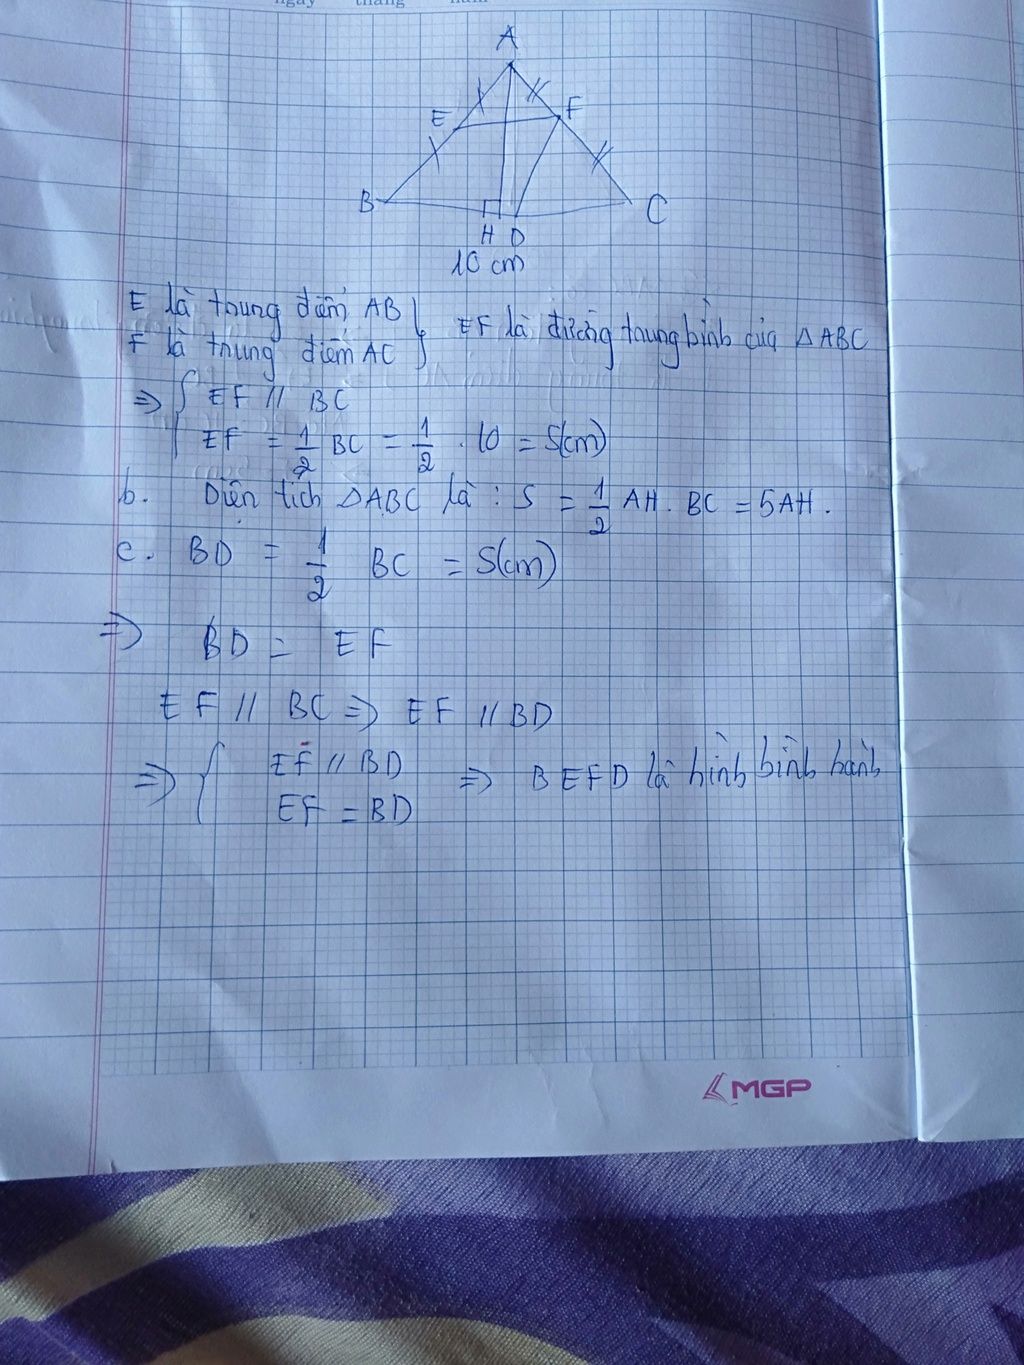 ngày tháng năm
A
E F
B C
H D
10 cm
E là trung điểm AB
F là trung điểm AC } EF là đường trung bình của △ABC
=> { EF // BC
EF = 1/2 BC = 1/2 . 10 = 5(cm)
b. Diện tích △ABC là : S = 1/2 AH. BC = 5AH.
c. BD = 1/2 BC = 5(cm)
=> BD = EF
EF // BC => EF // BD
=> { EF // BD => BEFD là hình bình hành
EF = BD
MGP